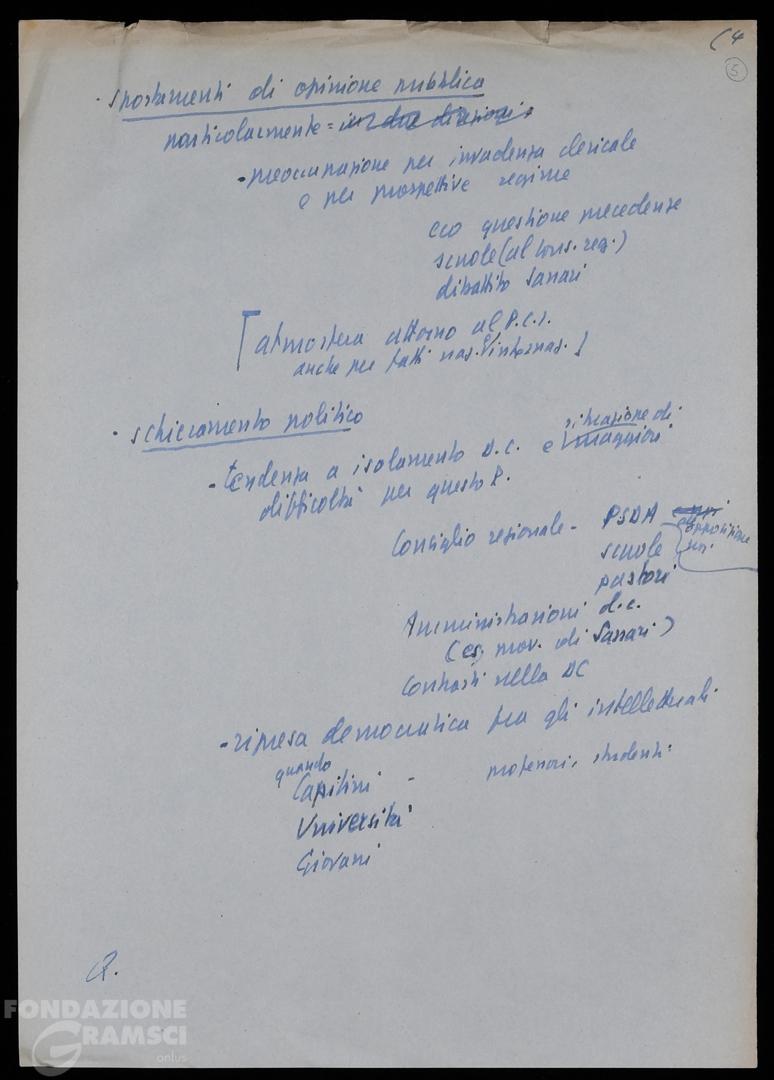 (4
5
· Spostamenti di opinione pubblica
particolarmente = in due direzioni:
- preoccupazione per invadenza clericale
e per prospettive regime
eco questione precedenze
scuole (al Cons. reg.)
dibattito Sassari
[atmosfera attorno al P.C.I.
anche per fatti naz. e internaz.]
· schieramento politico
situazione di
- tendenza a isolamento D.C. e maggiori
difficoltà per questo P.
Consiglio regionale - PSDA
opposizione
scuole
pastori
Amministrazioni d.c.
(es. mov. di Sassari)
Contrasti nella DC
- ripresa democratica fra gli intellettuali
quando
Capitini - professori, studenti
Università
Giovani
FONDAZIONE
GRAMSCI
onlus